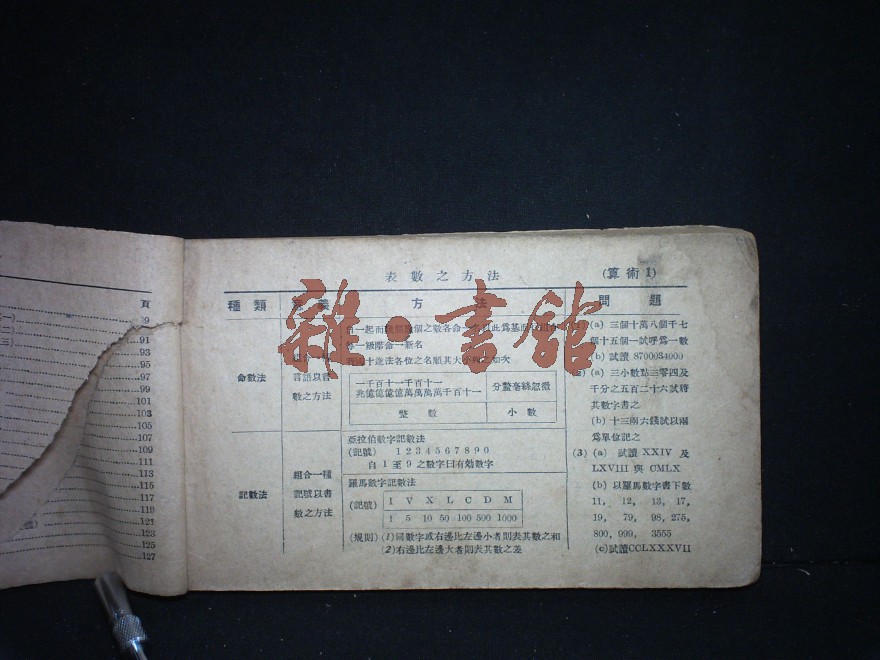 頁
91
93
95
97
99
101
103
105
107
109
111
113
115
117
119
121
123
125
127
表數之方法
(算術1)
種類
方法
問題
命數法
言語以書
數之方法
一級階命一新名
十進法各位之名順其大小列之如次
一千百十一千百十一
兆億億億億萬萬萬萬千百十一
分釐毫絲忽微
整數
小數
記數法
組合一種
記號以書
數之方法
亞拉伯數字記數法
(記號) 1 2 3 4 5 6 7 8 9 0
自1至9之數字曰有効數字
羅馬數字記數法
(記號)
I V X L C D M
1 5 10 50 100 500 1000
(規則) (1)同數字或右邊比左邊小者則表其數之和
(2)右邊比左邊大者則表其數之差
(a) 三個十萬八個千七
個十五個一試呼爲一數
(b) 試讀 8700034000
(a) 三小數點三零四及
千分之五百二十六試將
其數字書之
(b) 十三兩六錢試以兩
爲單位記之
(3) (a) 試讀 XXIV 及
LXVIII 與 CMLX
(b) 以羅馬數字書下數
11, 12, 13, 17,
19, 79, 98, 275,
800, 999, 3555
(c)試讀CCLXXXVII
雜·書館